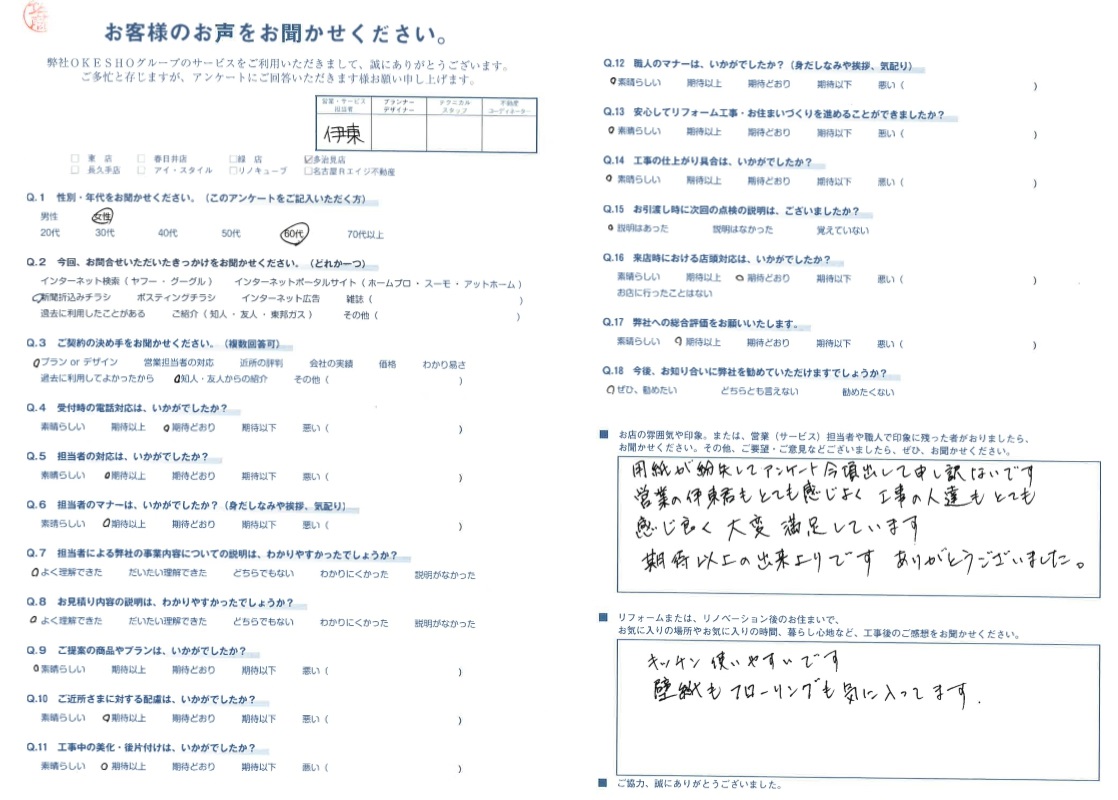 お客様のお声をお聞かせください。
弊社OKESHOグループのサービスをご利用いただきまして、誠にありがとうございます。
ご多忙と存じますが、アンケートにご回答いただきます様お願い申し上げます。
営業・サービス担当者 プランナーデザイナー テクニカルスタッフ 不動産コーディネーター
伊東
□ 東 店 □ 春日井店 □緑 店 ☑多治見店
□ 長久手店 □ アイ・スタイル □リノキューブ □名古屋Rエイジ不動産
Q.1 性別・年代をお聞かせください。（このアンケートをご記入いただく方）
男性 女性
20代 30代 40代 50代 60代 70代以上
Q.2 今回、お問合せいただいたきっかけをお聞かせください。（どれか一つ）
インターネット検索（ ヤフー ・ グーグル ） インターネットポータルサイト（ ホームプロ ・ スーモ ・ アットホーム ）
新聞折込みチラシ ポスティングチラシ インターネット広告 雑誌（ ）
過去に利用したことがある ご紹介（ 知人 ・ 友人 ・ 東邦ガス ） その他（ ）
Q.3 ご契約の決め手をお聞かせください。（複数回答可）
プラン or デザイン 営業担当者の対応 近所の評判 会社の実績 価格 わかり易さ
過去に利用してよかったから 知人・友人からの紹介 その他（ ）
Q.4 受付時の電話対応は、いかがでしたか？
素晴らしい 期待以上 期待どおり 期待以下 悪い（ ）
Q.5 担当者の対応は、いかがでしたか？
素晴らしい 期待以上 期待どおり 期待以下 悪い（ ）
Q.6 担当者のマナーは、いかがでしたか？（身だしなみや挨拶、気配り）
素晴らしい 期待以上 期待どおり 期待以下 悪い（ ）
Q.7 担当者による弊社の事業内容についての説明は、わかりやすかったでしょうか？
よく理解できた だいたい理解できた どちらでもない わかりにくかった 説明がなかった
Q.8 お見積り内容の説明は、わかりやすかったでしょうか？
よく理解できた だいたい理解できた どちらでもない わかりにくかった 説明がなかった
Q.9 ご提案の商品やプランは、いかがでしたか？
素晴らしい 期待以上 期待どおり 期待以下 悪い（ ）
Q.10 ご近所さまに対する配慮は、いかがでしたか？
素晴らしい 期待以上 期待どおり 期待以下 悪い（ ）
Q.11 工事中の美化・後片付けは、いかがでしたか？
素晴らしい 期待以上 期待どおり 期待以下 悪い（ ）
Q.12 職人のマナーは、いかがでしたか？（身だしなみや挨拶、気配り）
素晴らしい 期待以上 期待どおり 期待以下 悪い（ ）
Q.13 安心してリフォーム工事・お住まいづくりを進めることができましたか？
素晴らしい 期待以上 期待どおり 期待以下 悪い（ ）
Q.14 工事の仕上がり具合は、いかがでしたか？
素晴らしい 期待以上 期待どおり 期待以下 悪い（ ）
Q.15 お引渡し時に次回の点検の説明は、ございましたか？
説明はあった 説明はなかった 覚えていない
Q.16 来店時における店頭対応は、いかがでしたか？
素晴らしい 期待以上 期待どおり 期待以下 悪い（ ）
お店に行ったことはない
Q.17 弊社への総合評価をお願いいたします。
素晴らしい 期待以上 期待どおり 期待以下 悪い（ ）
Q.18 今後、お知り合いに弊社を勧めていただけますでしょうか？
ぜひ、勧めたい どちらとも言えない 勧めたくない
■ お店の雰囲気や印象。または、営業（サービス）担当者や職人で印象に残った者がおりましたら、
お聞かせください。その他、ご要望・ご意見などございましたら、ぜひ、お聞かせください。
用紙が紛失してアンケート今頃出して申し訳ないです
営業の伊東君もとても感じよく 工事の人達もとても
感じ良く 大変 満足しています
期待以上の出来上りです ありがとうございました。
■ リフォームまたは、リノベーション後のお住まいで、
お気に入りの場所やお気に入りの時間、暮らし心地など、工事後のご感想をお聞かせください。
キッチン 使いやすいです
壁紙もフローリングも気に入ってます.
■ ご協力、誠にありがとうございました。